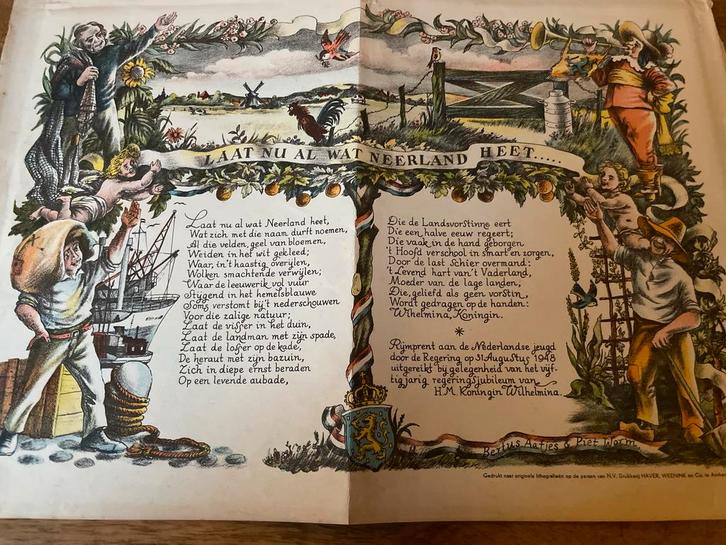 LAAT NU AL WAT NEERLAND HEET.....
Laat nu al wat Neerland heet,
Wat zich met die naam durft noemen,
Al die velden, geel van bloemen,
Weiden in het wit gekleed;
Waar, in 't haastig overijlen,
Wolken smachtende verwijlen;
Waar de leeuwerik vol vuur
Stijgend in het hemelsblauwe
Soms verstomt bij 't nederschouwen
Voor die zalige natuur;
Laat de visser in het duin,
Laat de landman met zijn spade,
Laat de losser op de kade,
De heraut met zijn bazuin,
Zich in diepe ernst beraden
Op een levende aubade,
Die de Landsvorstinne eert
Die een halve eeuw regeert;
Die vaak in de hand geborgen
't Hoofd verschool in smart en zorgen,
Door de last schier overmand:
't Levend hart van 't Vaderland,
Moeder van de lage landen,
Die, geliefd als geen vorstin,
Wordt gedragen op de handen:
Wilhelmina, Koningin.
*
Rijmprent aan de Nederlandse jeugd
door de Regering op 31 Augustus 1948
uitgereikt bij gelegenheid van het vijf-
tigjarig regeringsjubileum van
H.M. Koningin Wilhelmina.
Bertus Aafjes & Piet Worm
Gedrukt naar originele lithografieën op de persen van N.V. Drukkerij HAVER, WEENINK en Co. te